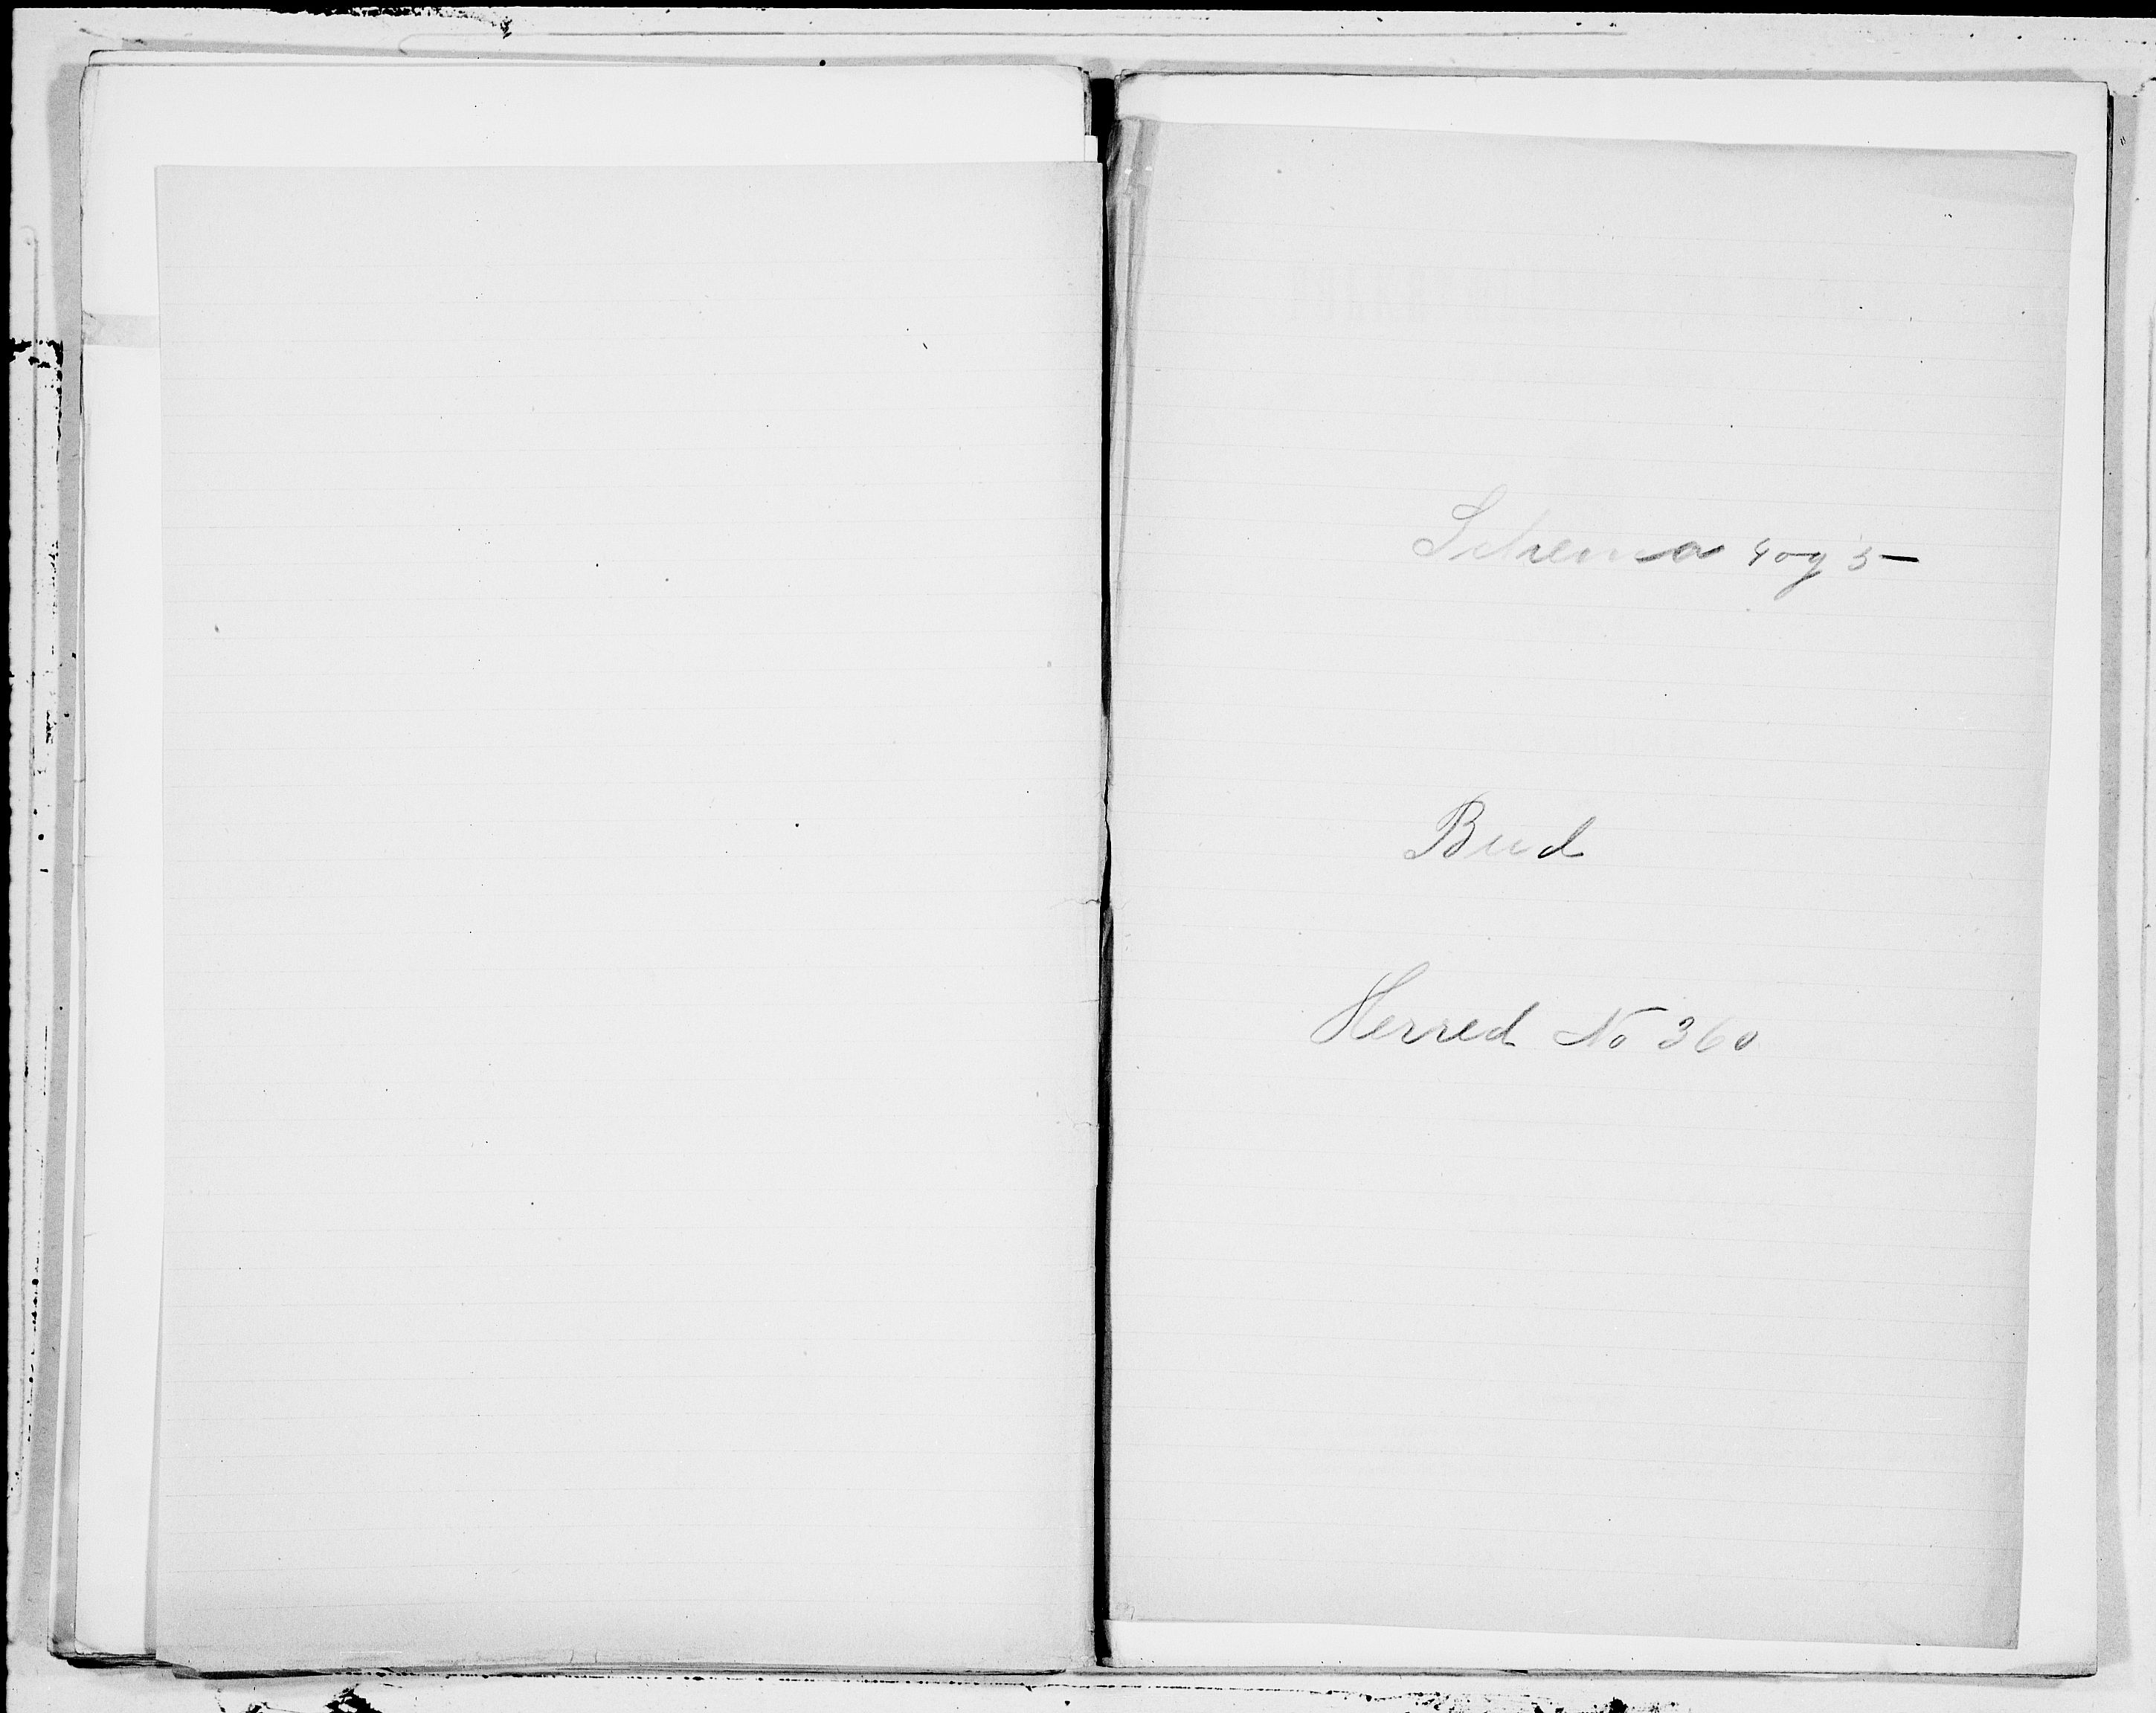 Schema 4 og 5
Bud
Herred No 360